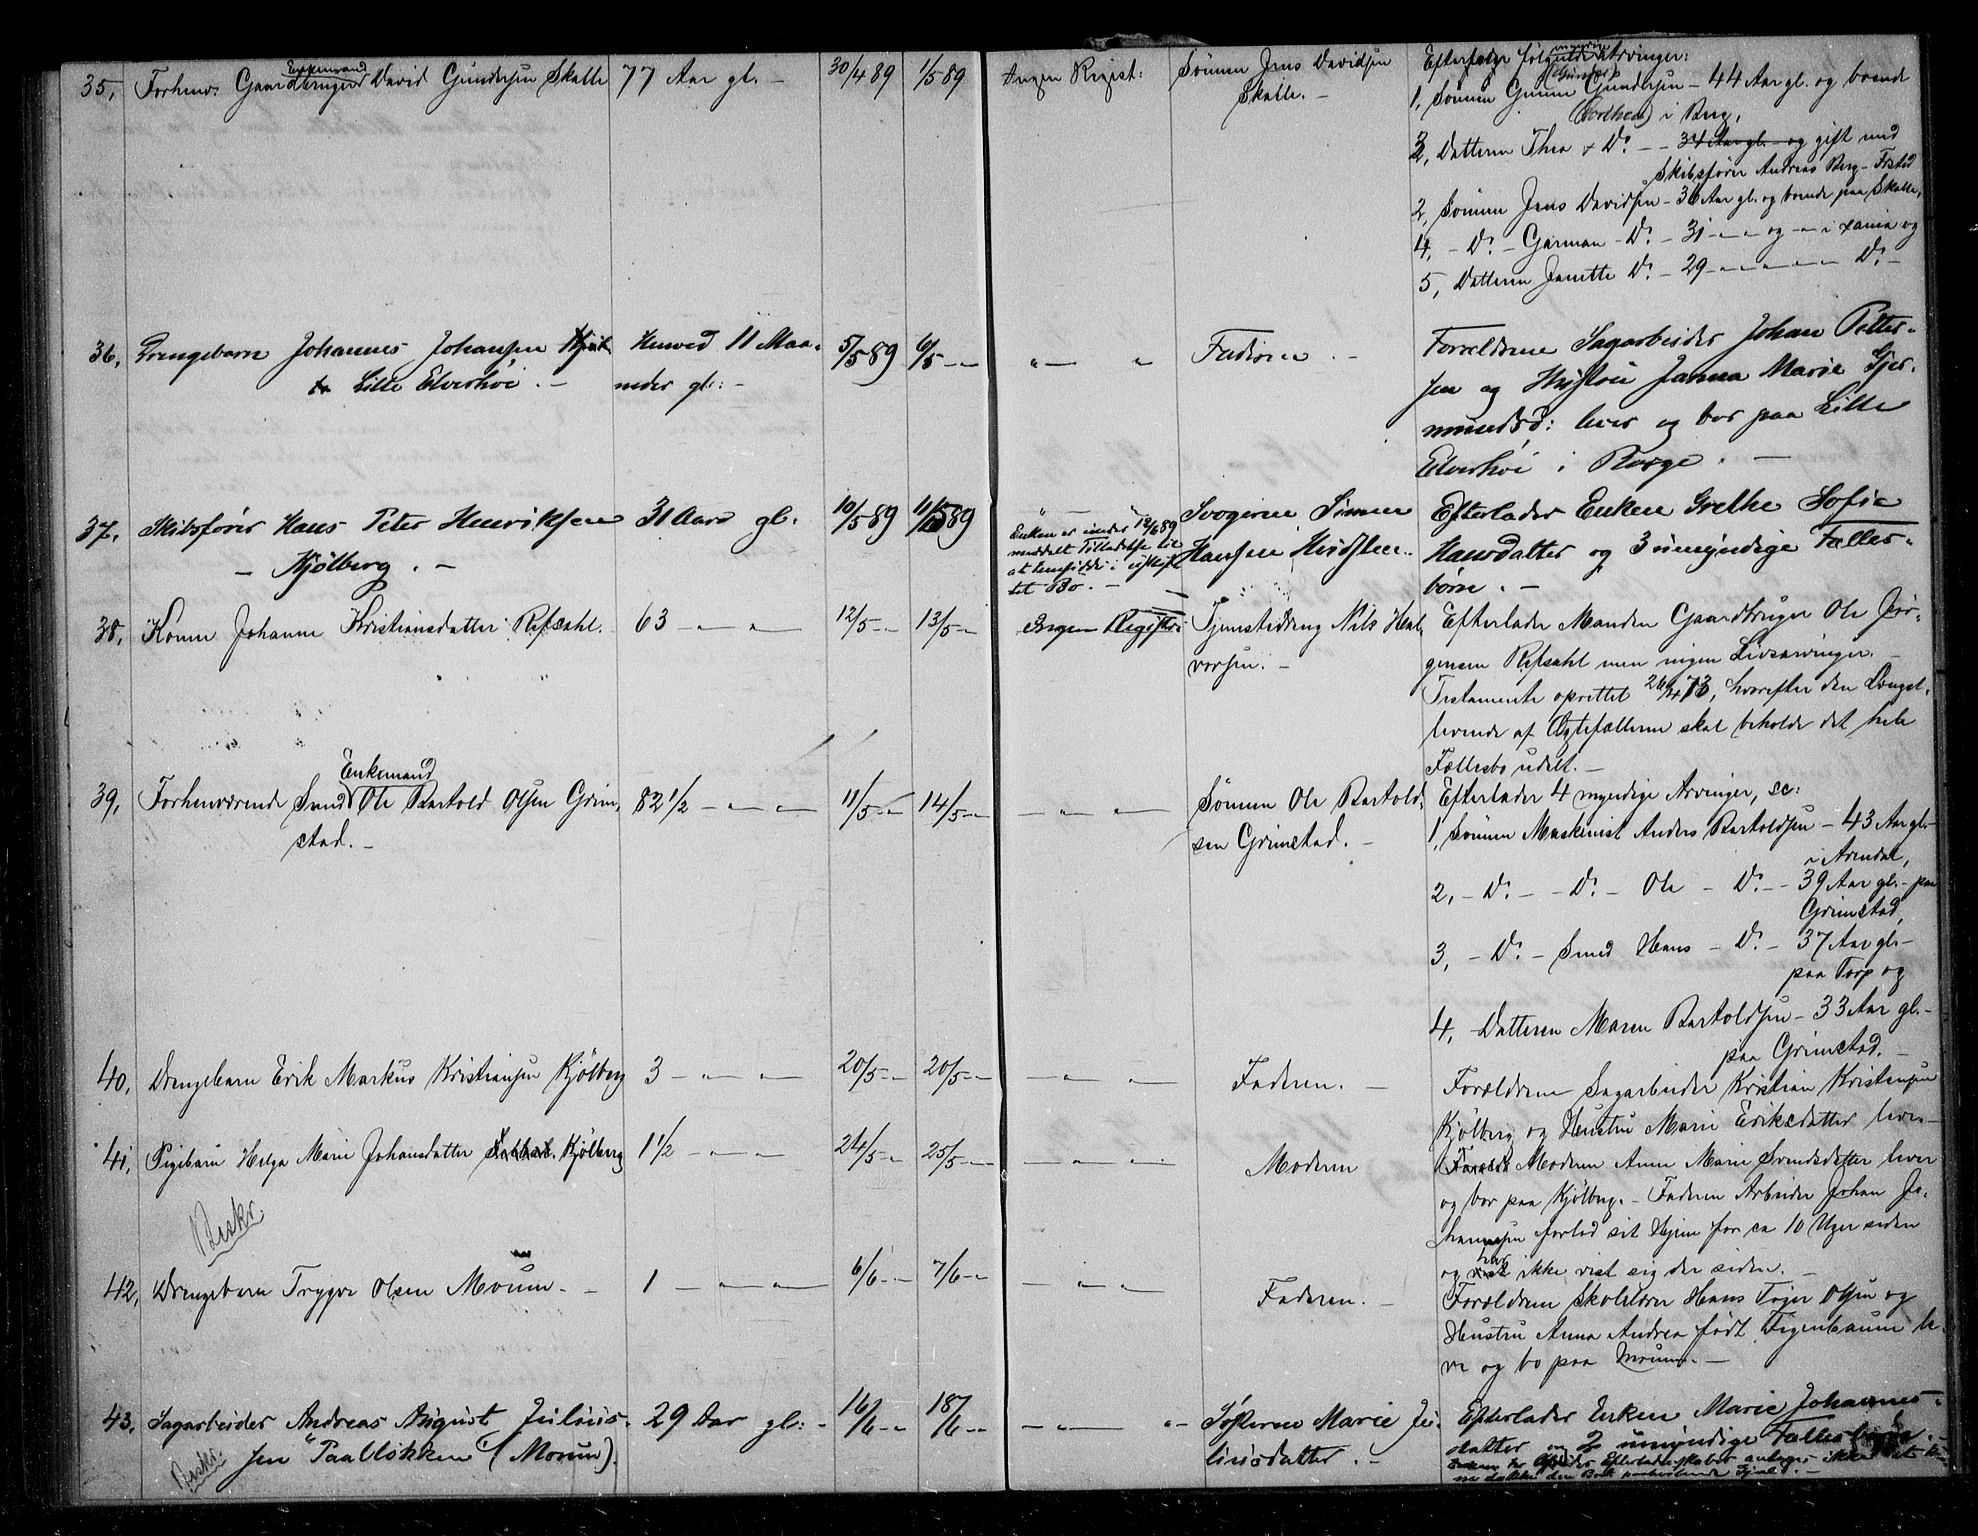 35, Forhenv. Gaardbruger David Gundersen Skatte
Enkemand
77 Aar gl. –
30/4 89
1/5 89
Ingen Regist:
Sönnen Jens Davidsen
Skatte. –
Efterfølge følgende Arvinger:
myndige
1, Sönnen Gunder Gundersen – 44 Aar gl. og boende
i Berg,
3, Datteren Thea D: – 34 Aar gl. og gift med
Skibsfører Andreas Berg – Fr.stad
2, Sönnen Jens Davidsen – 36 Aar gl. og boende paa Skatte,
4, – D: – Garman – D: – 31 – " – og – " – i Xania og
5, Datteren Janette D: – 29 – " – " – " – D: –
36, Drengebarn Johannes Johansen
Lille Elverhöi. –
Henved 11 Maa-
neder gl: –
5/5 89
6/5 – "
" – "
Faderen. –
Forældrene Sagarbeider Johan Petter-
sen og Hustru Janna Marie Gjer-
mundsd: lever og bor paa Lille
Elverhöi i Borge. –
37, Skibsfører Hans Peter Henriksen
– Kjölberg. –
31 Aar gl.
10/5 89
11/5 89
Enken er under 12/6 89
meddelt Tilladelse til
at hensidde i uskif-
tet Bo. –
Svogeren Simen
Hansen Hvidsten.
Efterlader Enken Grethe Sofie
Hansdatter og 3 umyndige Fælles-
børn. –
38, Konen Johanne Kristiansdatter Refsahl.
63 – " – "
12/5 – "
13/5 – "
Ingen Registr:
Tjenestedreng Nils Hal-
vorsen. –
Efterlader Manden Gaardbruger Ole Jör-
gensen Refsahl men ingen Livsarvinger. –
Testamente oprettet 26/4 73, hvorefter den Længst-
levende af Ægtefællerne skal beholde det hele
Fællesbo udelt. –
39, Forhenværende Smed Ole Bartold Olsen Grim-
Enkemand
stad. –
82 1/2 – " – "
11/5 – "
14/5 – "
– " – "
Sönnen Ole Bartold-
sen Grimstad. –
Efterlader 4 myndige Arvinger, sc:
1, Sönnen Maskinist Anders Bartoldsen – 43 Aar gl. –
i Arendal,
2, – D: – – D: – Ole – D: – 39 Aar gl. – paa
Grimstad,
3, – D: – Smed Hans – D: – 37 Aar gl. –
paa Torp og
4, Datteren Maren Bartoldsen – 33 Aar gl. –
paa Grimstad. –
40, Drengebarn Erik Markus Kristiansen Kjölberg
3 – " – "
20/5 – "
20/5 – "
– " – "
Faderen. –
Forældrene Sagarbeider Kristian Kristensen
Kjölberg og Hustru Marie Eriksdatter lever –
41, Pigebarn Helga Marie Johansdatter Kjölberg
1 1/2 – " – "
24/5 – "
25/5 – "
– " – "
Moderen
Moderen Anne Marie Svendsdatter lever
og bor paa Kjölberg. – Faderen Arbeider Johan Jo-
hannesen forlod sit Hjem for ca 10 Uger siden
har
og ikke vist sig der siden. –
Beskr.
42, Drengebarn Trygve Olsen Moum. –
1 – " – "
6/6 – "
7/6 – "
– " – "
Faderen. –
Forældrene Skolelærer Hans Toger Olsen og
Hustru Anna Andrea født Figenbaum le-
ve og bo paa Moum. –
43, Sagarbeider Andreas August Julius-
sen "Paalløkken" (Moum).
Beskr.
29 Aar gl: –
16/6 – "
18/6 – "
– " – "
Søsteren Marie Ju-
liusdatter. –
Efterlader Enken Marie Johannes-
datter og 2 umyndige Fællesbørn. –
Efterladenskaber antages ikke at kun-
ne dække den Bork paahvilende Gjæld. –